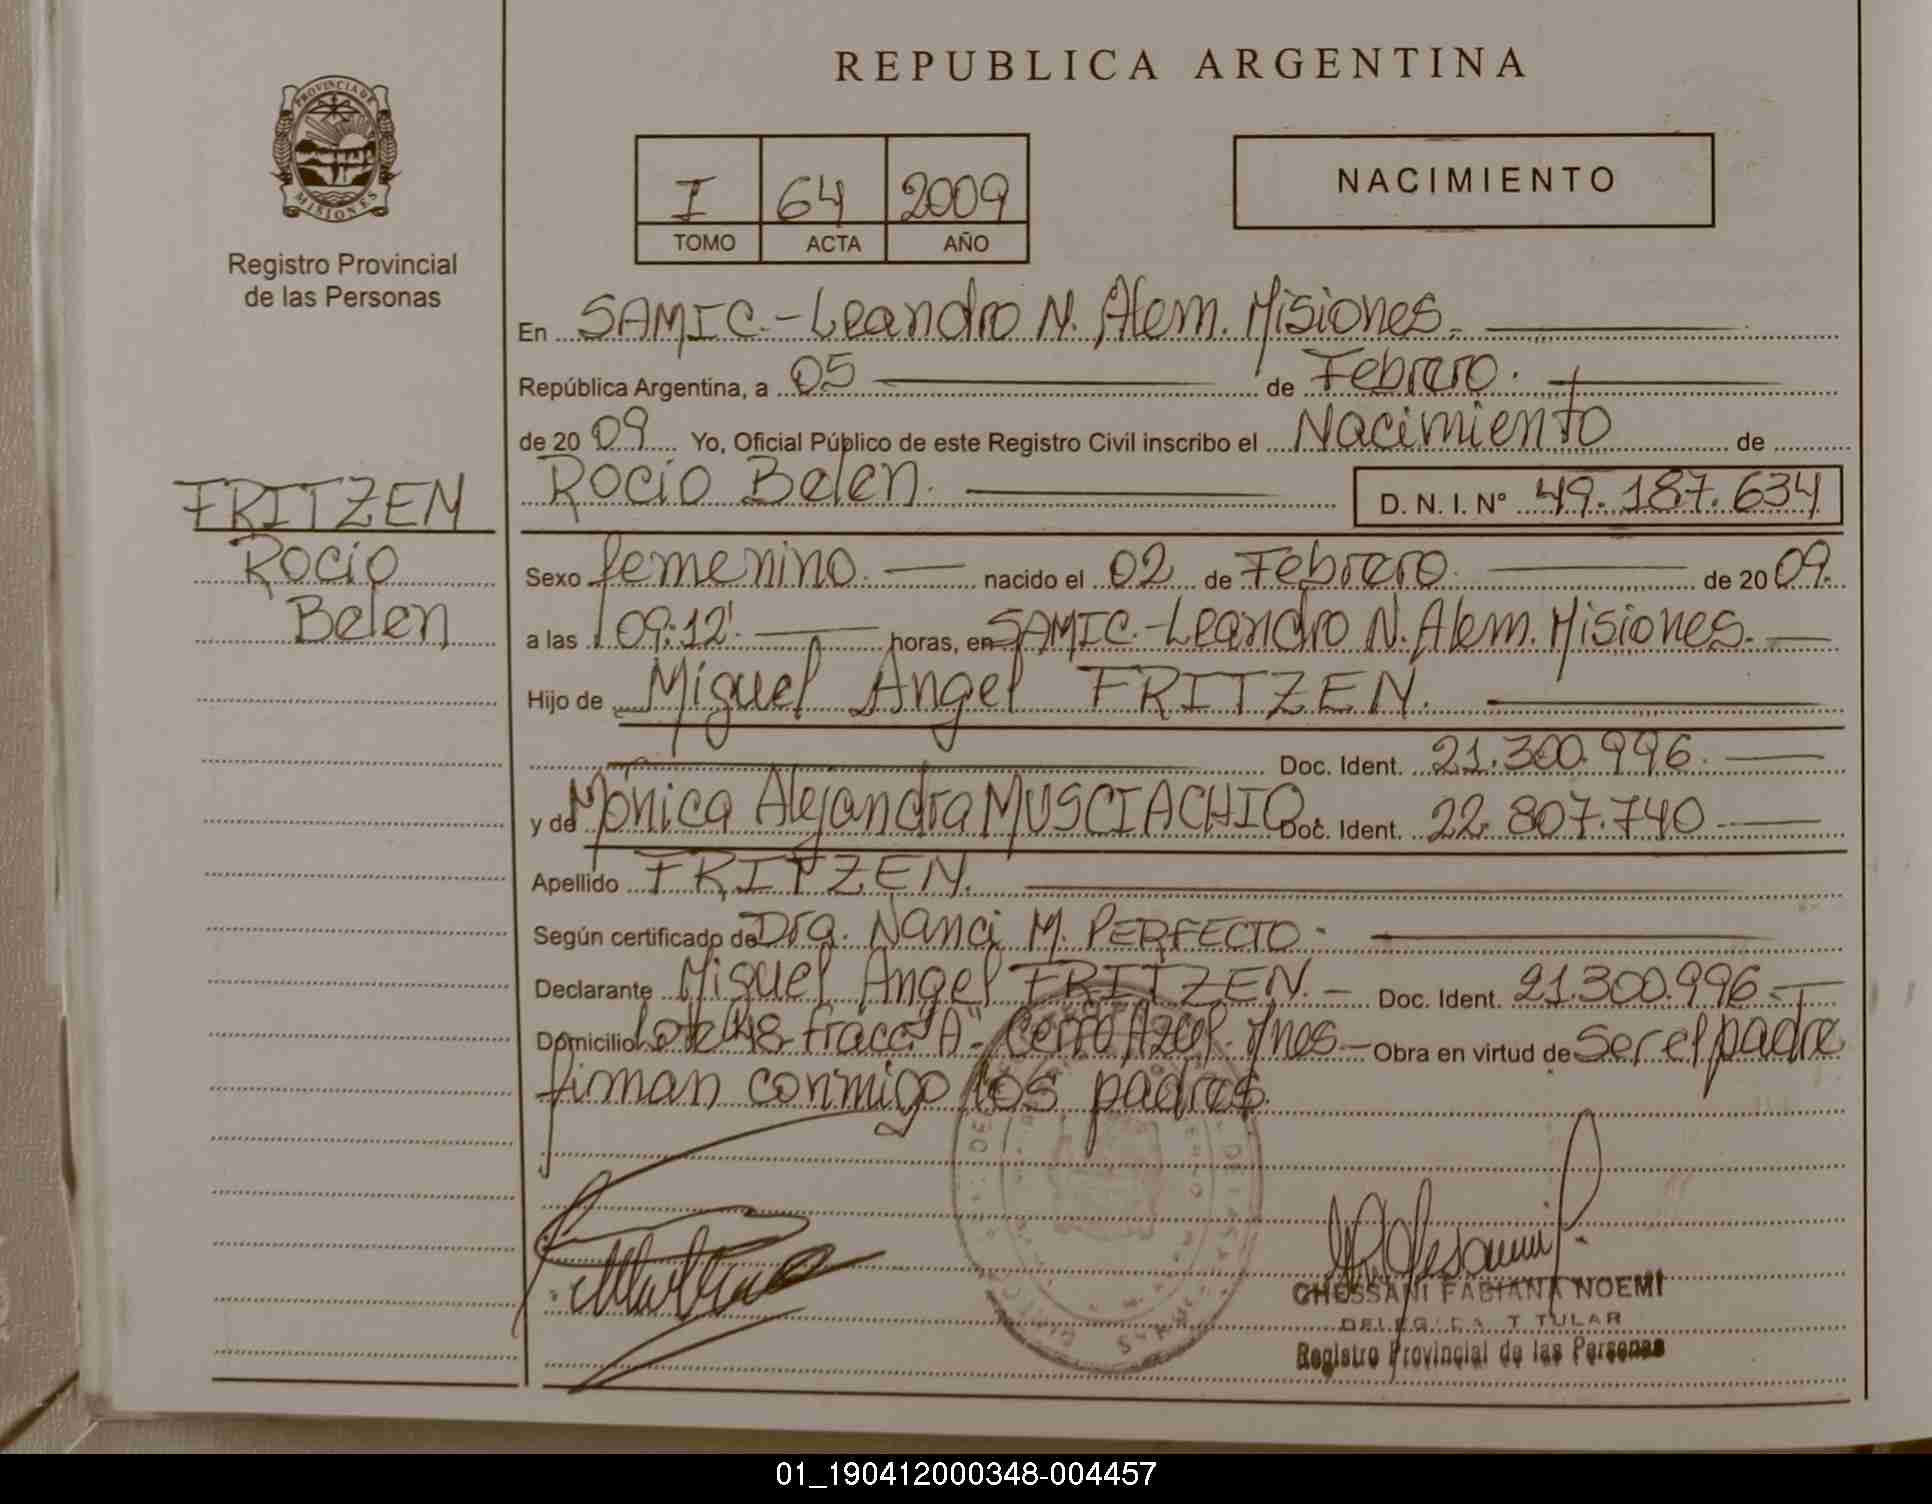 REPUBLICA ARGENTINA
PROVINCIA DE
MISIONES
Registro Provincial
de las Personas
I 64 2009
TOMO ACTA AÑO
NACIMIENTO
En SAMIC.-Leandro N. Alem. Misiones.
República Argentina, a 05 de Febrero.
de 20 09 Yo, Oficial Público de este Registro Civil inscribo el Nacimiento de
Rocio Belen. D. N. I. N° 49.187.634
FRITZEN
Rocio
Belen
Sexo femenino. nacido el 02 de Febrero. de 20 09.
a las 09:12'. horas, en SAMIC.-Leandro N. Alem. Misiones.
Hijo de Miguel Angel FRITZEN.
Doc. Ident. 21.300.996.
y de Monica Alejandra MUSCIACHIO. Doc. Ident. 22.807.740
Apellido FRITZEN.
Según certificado de Dra. Nanci M. PERFECTO.
Declarante Miguel Angel FRITZEN. Doc. Ident. 21.300.996.
Domicilio Lote 48 fracc. "A" - Cerro Azul. Mnes Obra en virtud de ser el padre
firman conmigo los padres.
CHESSANI FABIANA NOEMI
DELEGADA TITULAR
Registro Provincial de las Personas
01_190412000348-004457